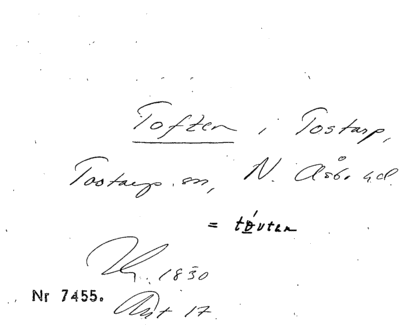 Toften i Tostarp,
Tostarp sn, N. Åsbo hd.
= tóuten
1830
Nr 7455.
Ant 17